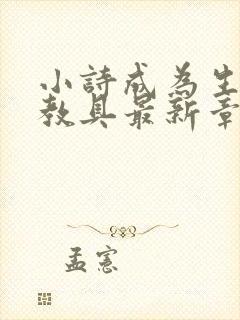 小詩成為生
教具最新章
孟憲